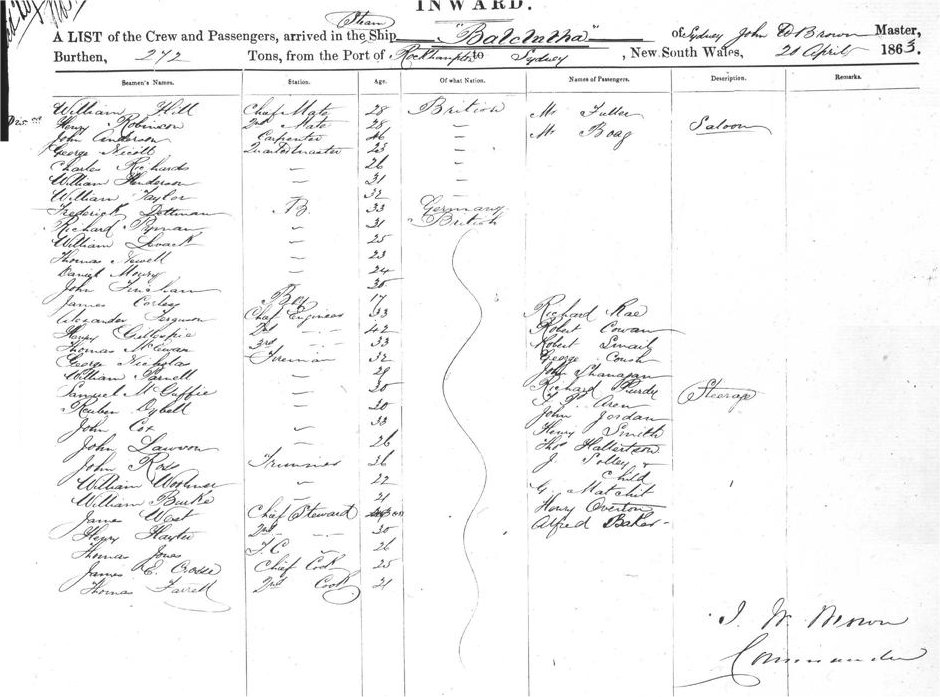 INWARD.
Steam
A LIST of the Crew and Passengers, arrived in the Ship "Balclutha" of Sydney John W Brown Master,
Burthen, 272 Tons, from the Port of Rockhampton to Sydney, New South Wales, 20 April 1863.
Seamen's Names. Station. Age. Of what Nation. Names of Passengers. Description. Remarks.
William Hill Chief Mate 28 British Mr Fuller
Henry Robinson 2nd Mate 28 — Mr Boag Saloon
John Anderson Carpenter 46 —
George Nicoll Quartermaster 23 —
Charles Richards — 26 —
William Henderson — 31 —
William Taylor — 32 —
Frederick Dottman AB. 33 Germany
Richard Pyman — 31 British
William Lovack — 25
Thomas Newell — 23
Daniel Moury — 24
John Fincham — 35
James Corley Boy 17 Richard Rae
Alexander Ferguson Chief Engineer 33 Robert Cowan
Henry Gillespie 2nd — 42 Robert Smail
Thomas McEwan 3rd — 33 George Coush
George Nicholas Fireman 32 John Shanagan
William Parnell — 29 Richard Purdie
Samuel McGuffie — 30 Aron Steerage
Reuben Dybell — 30 John Jordan
John Cox — 33 Henry Smith
John Lawson — 26 Thos Halbertson
John Ross Trimmer 36 J. Solley &
William Woolmer — 22 Child
William Burke 21 G. Matchit
James West Chief Steward Henry Overton
Henry Hayter 2nd — 30 Alfred Baker
Thomas Jones F.C — 26
James E. Crosse Chief Cook 25
Thomas Farrell 2nd Cook 21
J. W. Brown
Commander